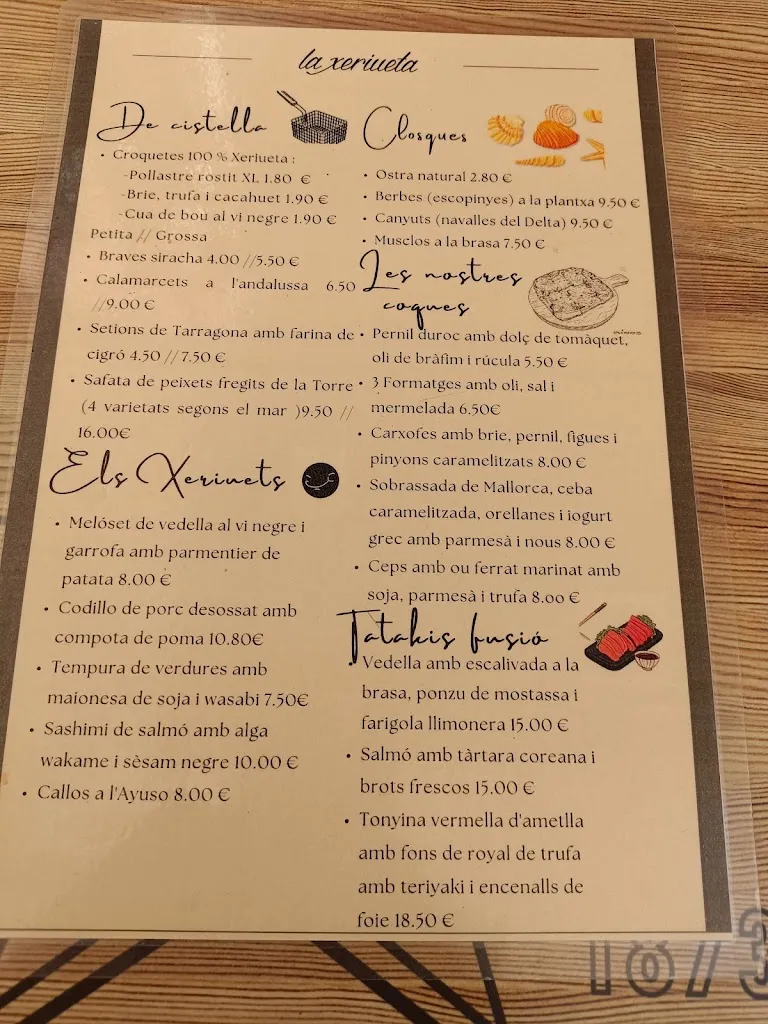 la xeriueta
De cistella
• Croquetes 100 % Xeriueta :
-Pollastre rostit XL 1.80 €
-Brie, trufa i cacahuet 1.90 €
-Cua de bou al vi negre 1.90 €
Petita // Grossa
• Braves siracha 4.00 //5.50 €
• Calamarcets a l'andalussa 6.50
//9.00 €
• Setions de Tarragona amb farina de
cigró 4.50 // 7.50 €
• Safata de peixets fregits de la Torre
(4 varietats segons el mar )9.50 //
16.00€
Els Xeriuets
• Melóset de vedella al vi negre i
garrofa amb parmentier de
patata 8.00 €
• Codillo de porc desossat amb
compota de poma 10.80€
• Tempura de verdures amb
maionesa de soja i wasabi 7.50€
• Sashimi de salmó amb alga
wakame i sèsam negre 10.00 €
• Callos a l'Ayuso 8.00 €
Closques
• Ostra natural 2.80 €
• Berbes (escopinyes) a la plantxa 9.50 €
• Canyuts (navalles del Delta) 9.50 €
• Musclos a la brasa 7.50 €
Les nostres
coques
• Pernil duroc amb dolç de tomàquet,
oli de bràfim i rúcula 5.50 €
• 3 Formatges amb oli, sal i
mermelada 6.50€
• Carxofes amb brie, pernil, figues i
pinyons caramelitzats 8.00 €
• Sobrassada de Mallorca, ceba
caramelitzada, orellanes i iogurt
grec amb parmesà i nous 8.00 €
• Ceps amb ou ferrat marinat amb
soja, parmesà i trufa 8.00 €
Tatakis fusió
• Vedella amb escalivada a la
brasa, ponzu de mostassa i
farigola llimonera 15.00 €
• Salmó amb tàrtara coreana i
brots frescos 15.00 €
• Tonyina vermella d'ametlla
amb fons de royal de trufa
amb teriyaki i encenalls de
foie 18.50 €